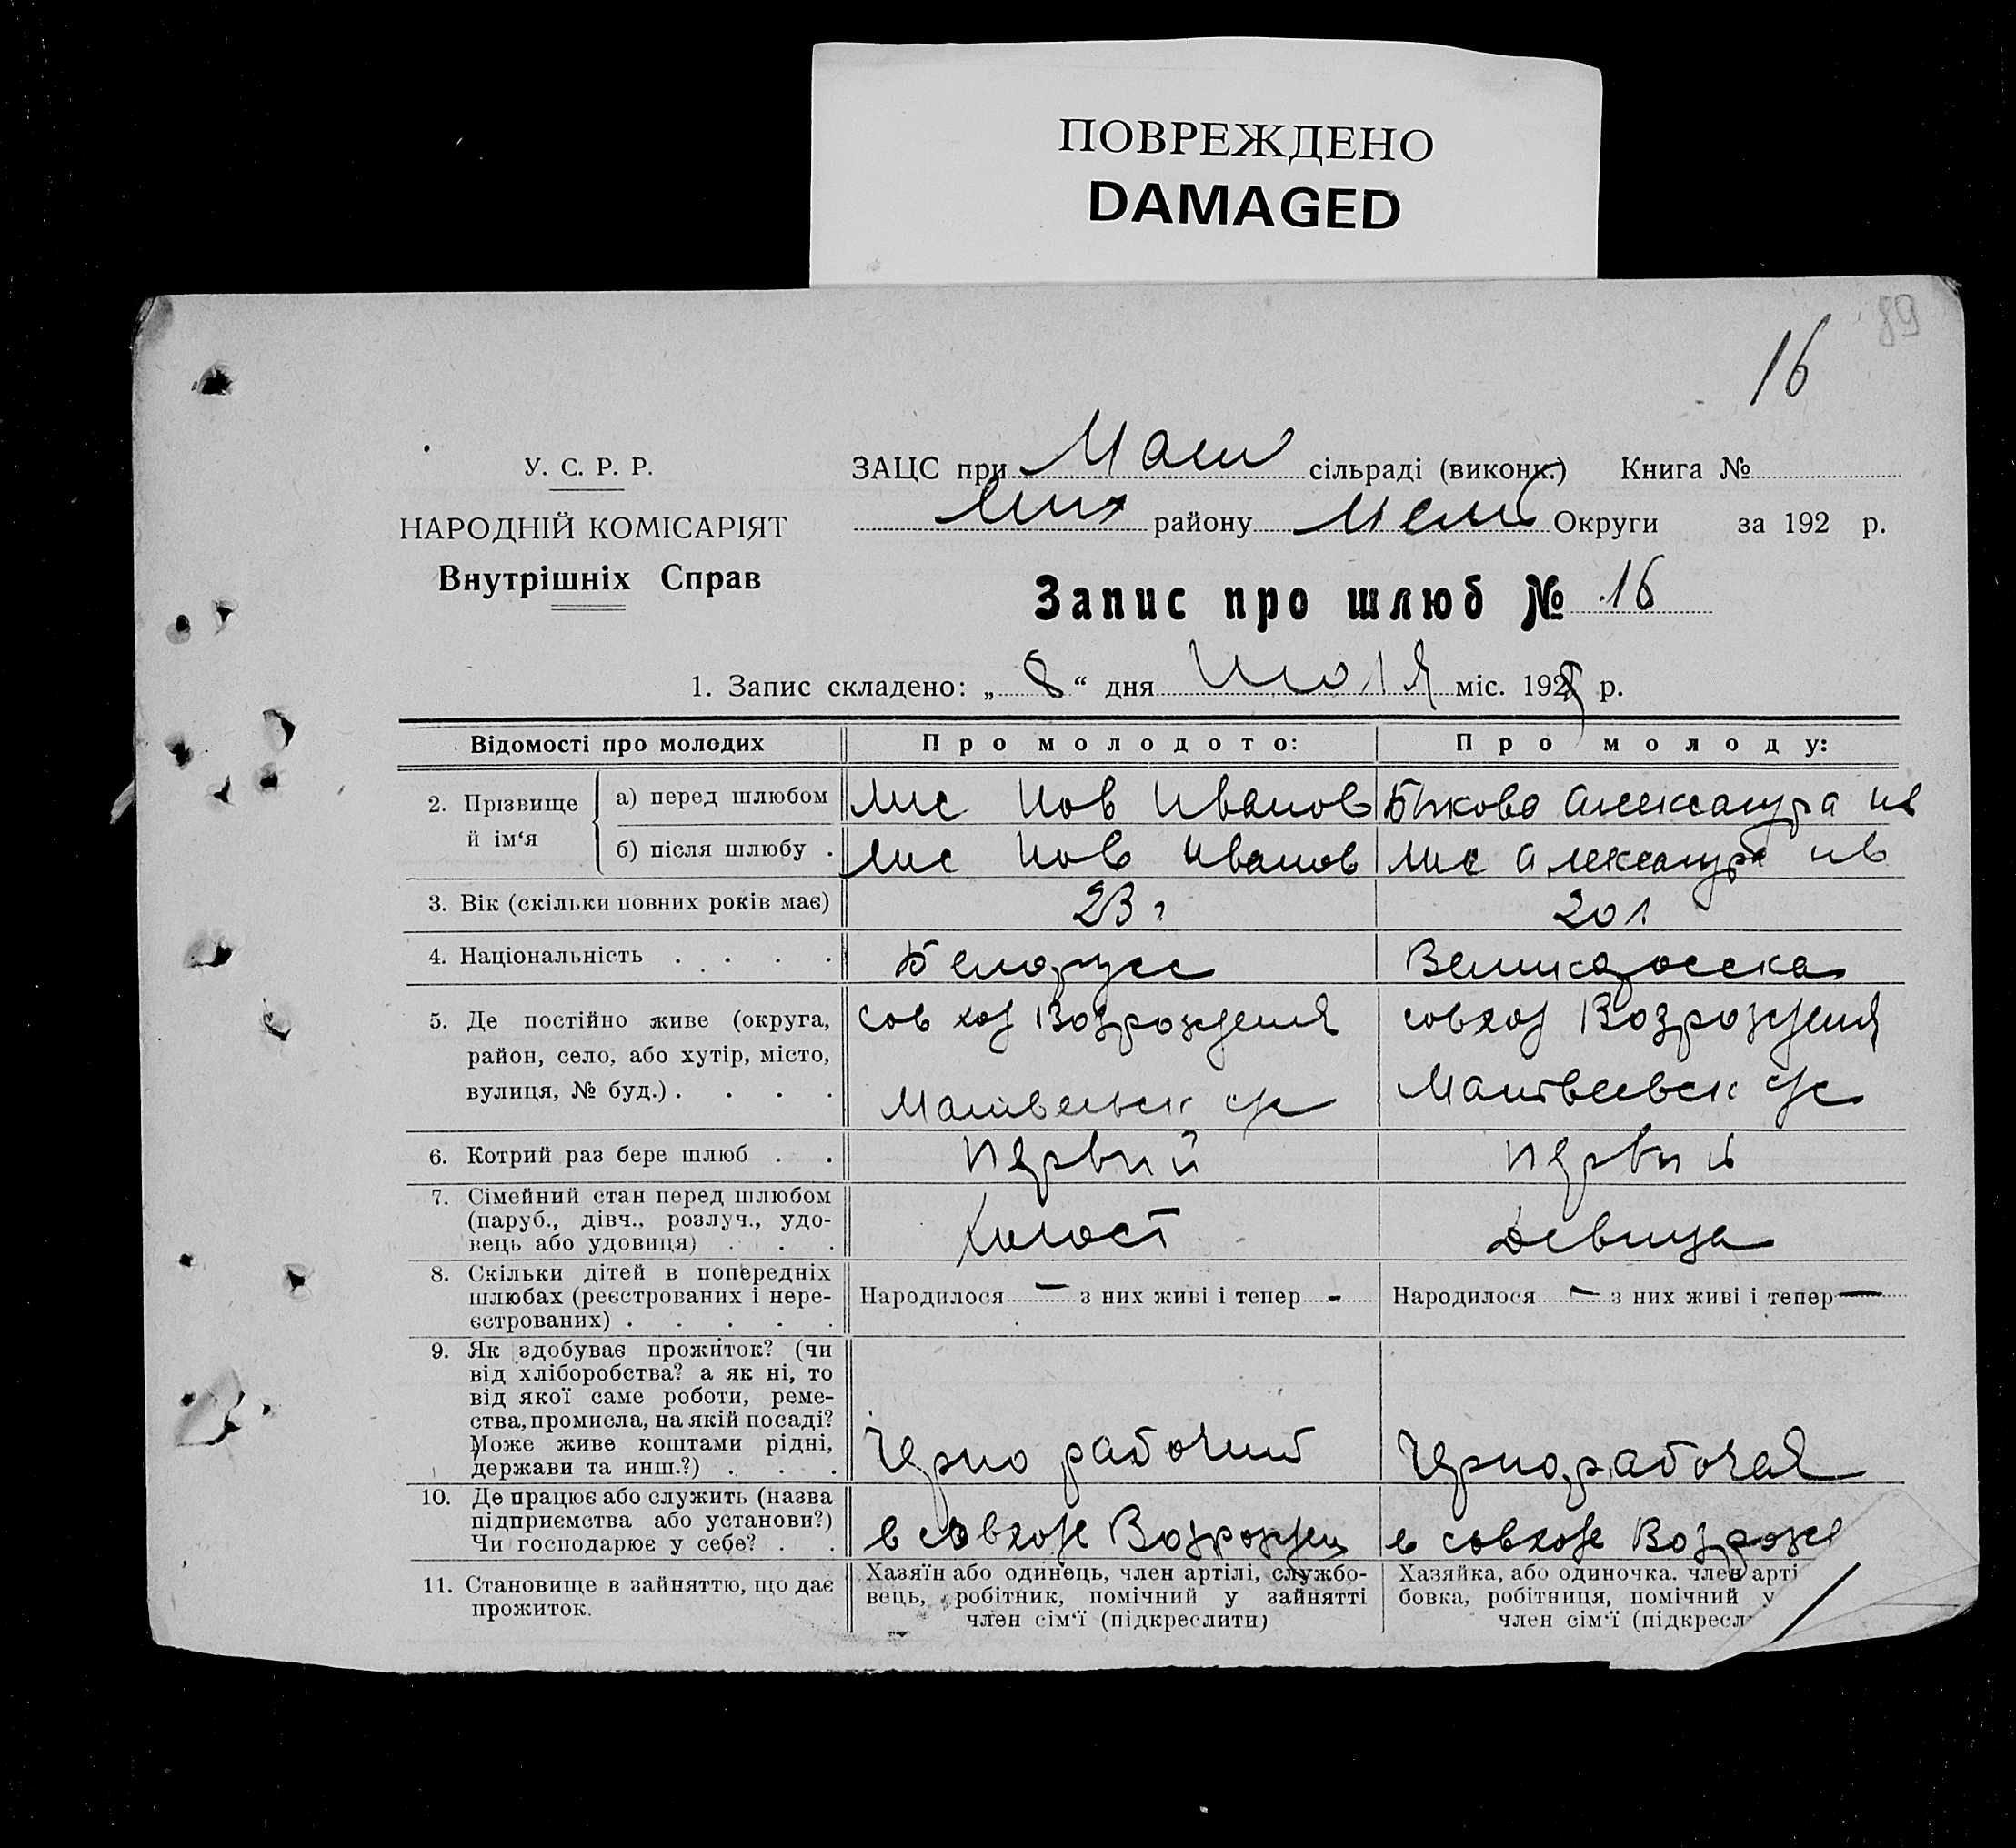 ПОВРЕЖДЕНО
DAMAGED
89
16
У. С. Р. Р.
НАРОДНІЙ КОМІСАРІЯТ
Внутрішніх Справ
ЗАЦС при Мат сільраді (виконк.) Книга №
району Мел Округи за 192 р.
Запис про шлюб № 16
1. Запис складено: „ 8 “ дня Июля міс. 192 р.
Відомості про молодих Про молодого: Про молоду:
2. Прізвище й ім‘я
а) перед шлюбом Лис Иов Иванов Бикова Александра Ив
б) після шлюбу . Лис Иов Иванов Лис Александра Ив
3. Вік (скільки повних років має) 23 г 20 л
4. Національність . . . . Белорусс Великоросска
5. Де постійно живе (округа, район, село, або хутір, місто, вулиця, № буд.) . . . .
совхоз Возрождения
Матвеевск с/с
совхоз Возрождения
Матвеевск с/с
6. Котрий раз бере шлюб . . Первий Первий
7. Сімейний стан перед шлюбом
(паруб., дівч., розлуч., удо-
вець або удовиця) . . . Холост Девица
8. Скільки дітей в попередніх
шлюбах (реєстрованих і нере-
єстрованих) . . . . .
Народилося — з них живі і тепер - Народилося — з них живі і тепер —
9. Як здобуває прожиток? (чи
від хліборобства? а як ні, то
від якої саме роботи, реме-
ства, промисла, на якій посаді?
Може живе коштами рідні,
держави та инш.?) . . .
Чернорабочий Чернорабочая
10. Де працює або служить (назва
підприємства або установи?)
Чи господарює у себе? . .
в совхозе Возрожден в совхозе Возрож
11. Становище в зайняттю, що дає
прожиток.
Хазяїн або одинець, член артілі, службо-
вець, робітник, помічний у зайнятті
член сім‘ї (підкреслити)
Хазяйка, або одиночка, член арті
бовка, робітниця, помічний у
член сім‘ї (підкресл